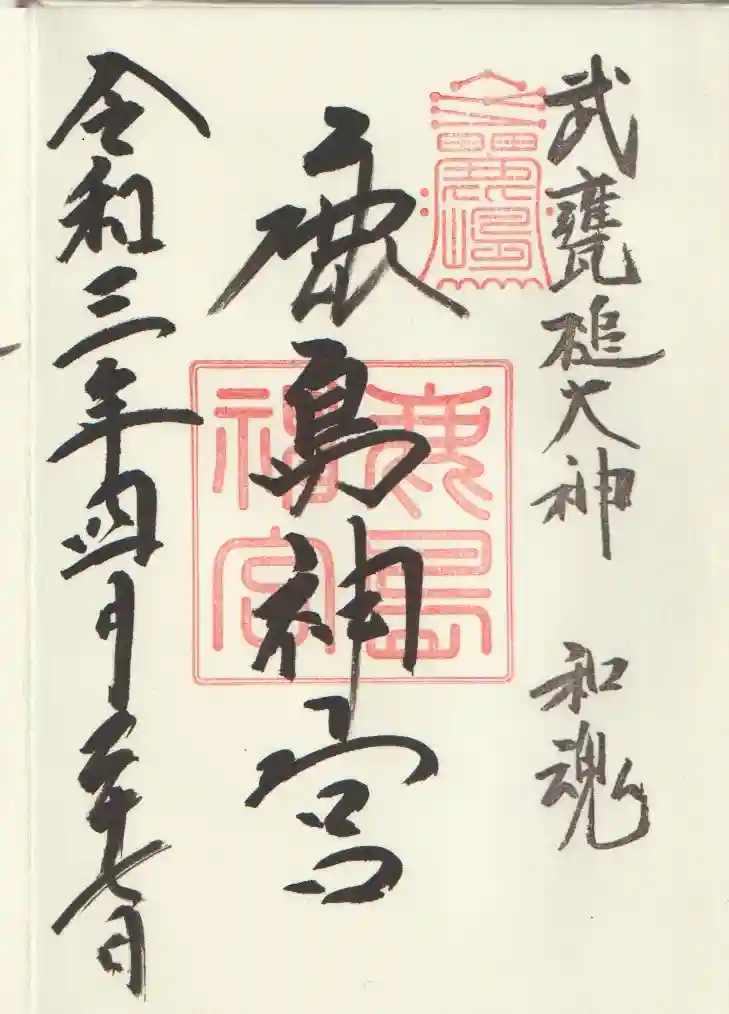 武甕槌大神 和魂
鹿島神宮
令和三年四月二十七日
鹿島
神宮